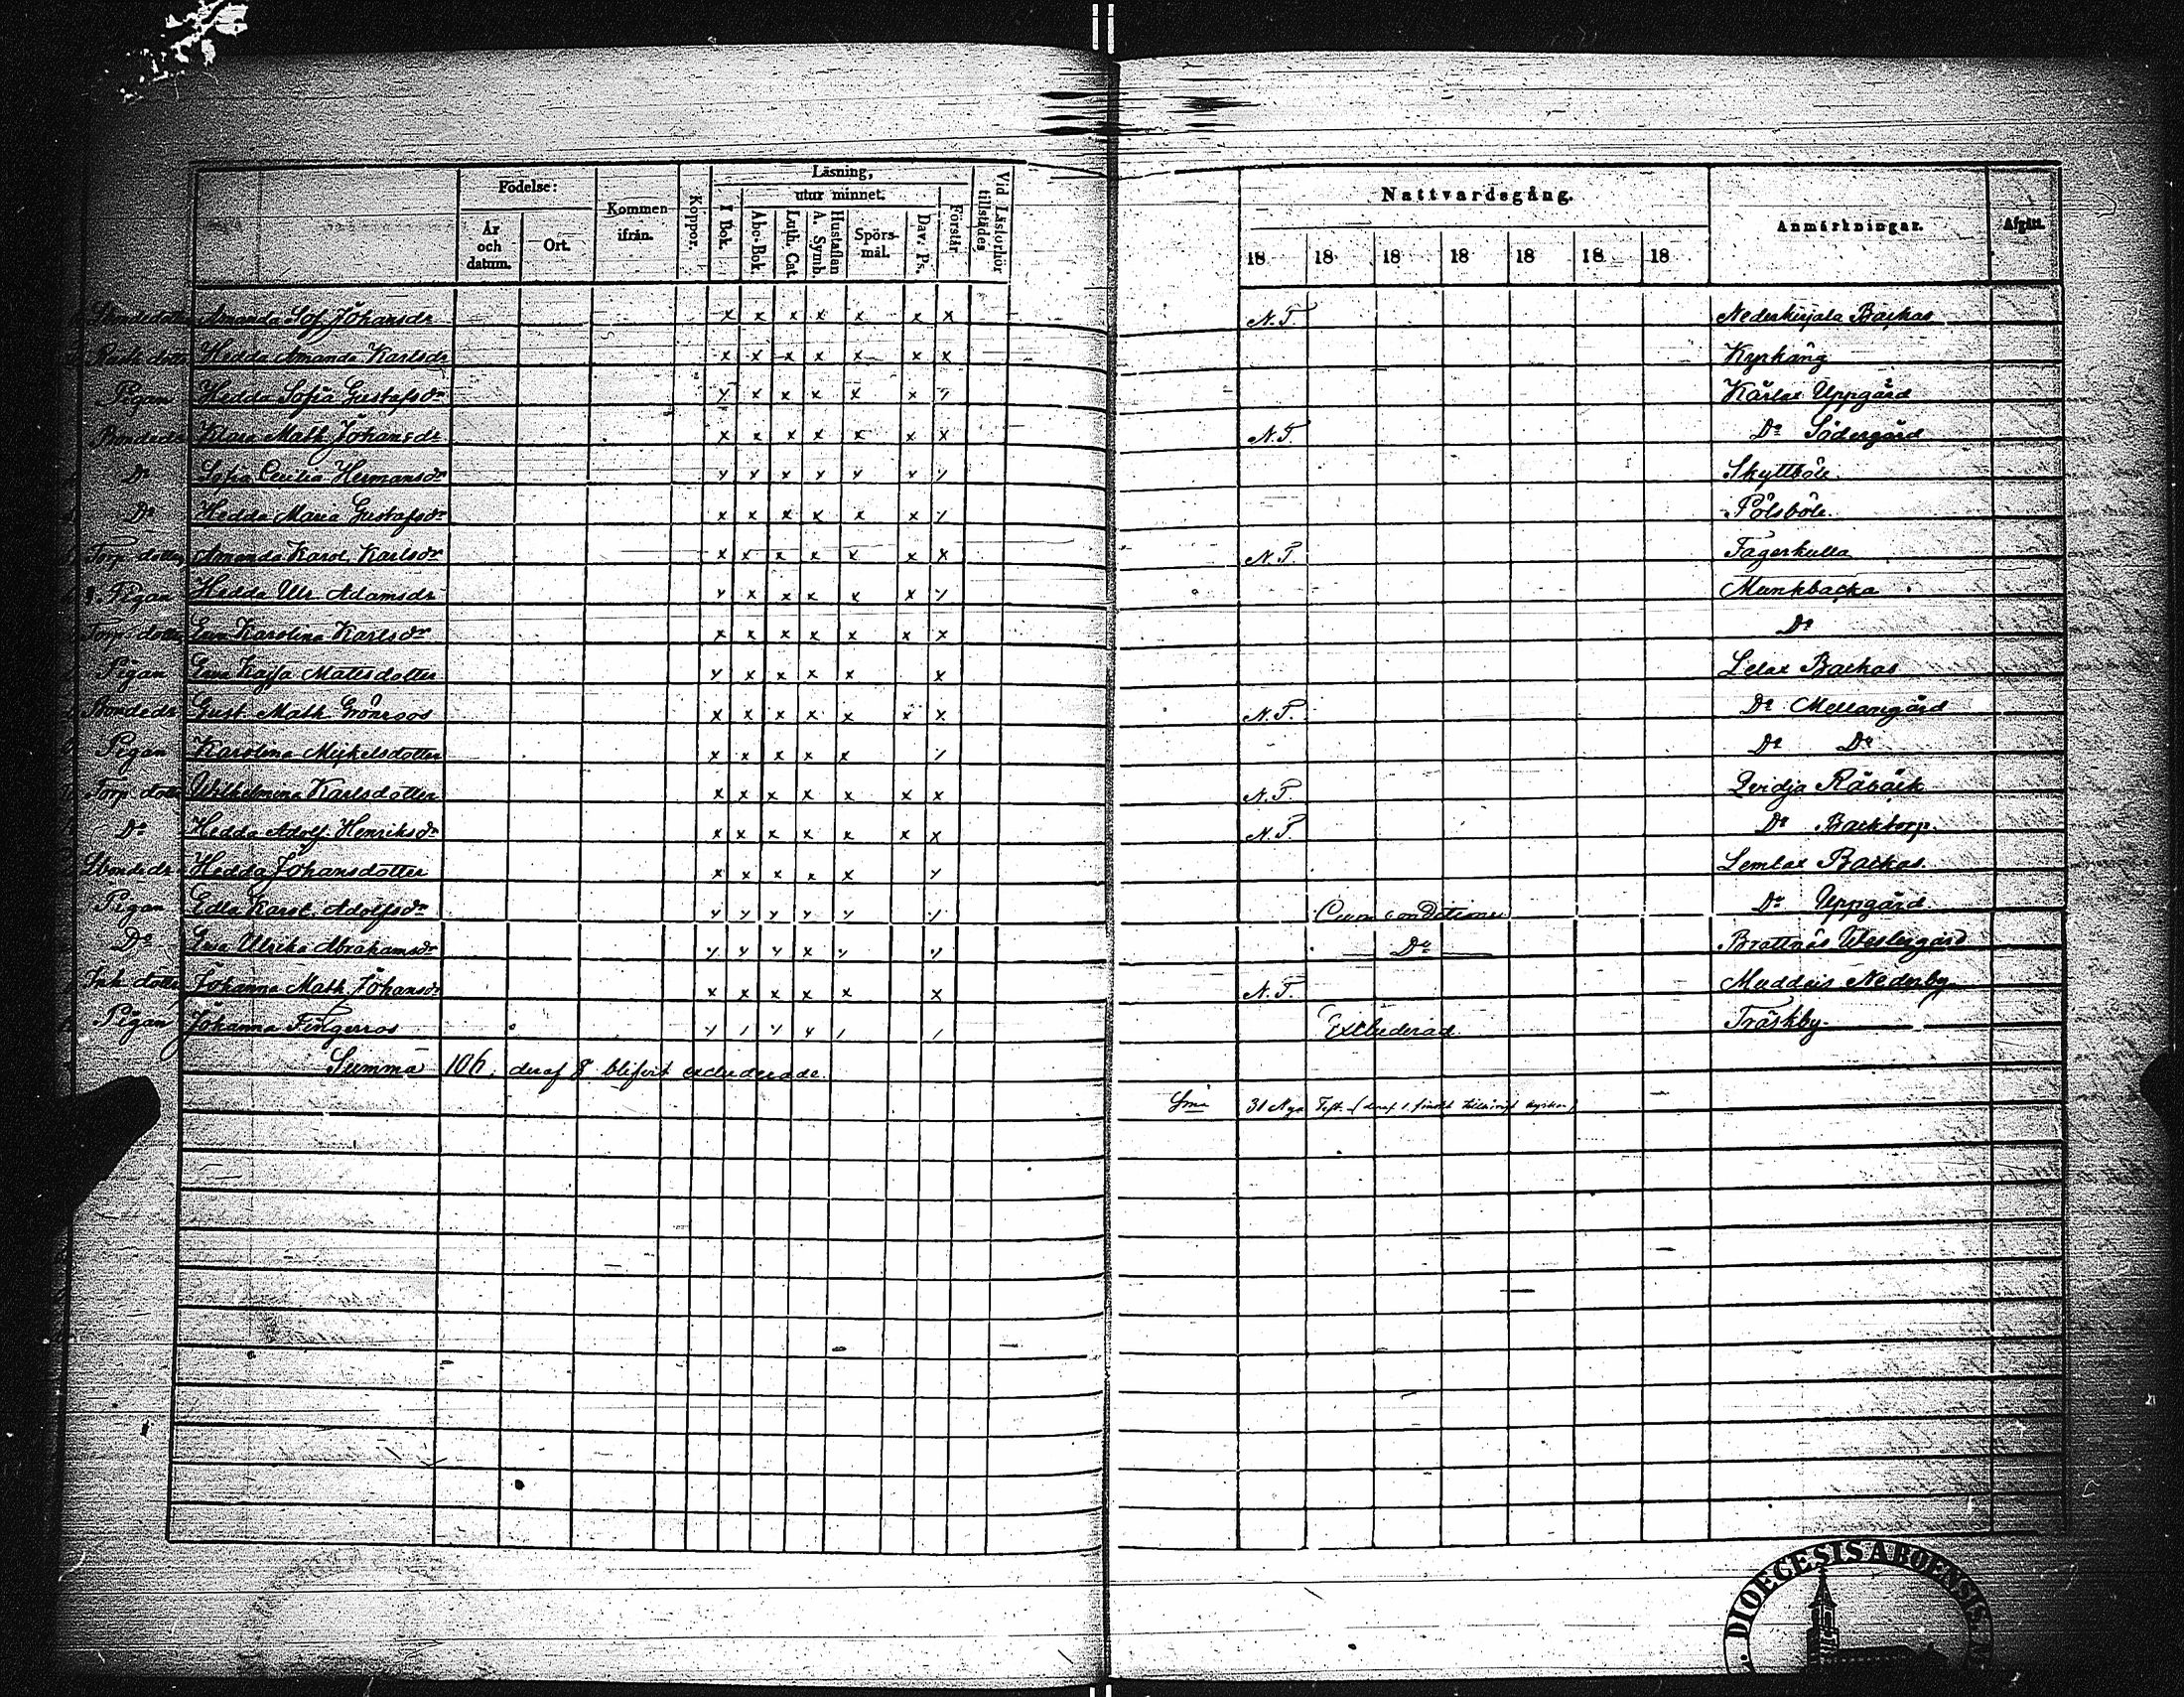 Födelse:
År och datum.
Ort.
Kommen ifrån.
Koppor.
Läsning,
utur minnet.
I Bok.
Abc-Bok.
Luth. Cat.
Hustaflan A. Symb.
Spörsmål.
Dav. Ps.
Förstår
Vid Läsförhör tillstädes
Nattvardsgång.
18 18 18 18 18 18 18
Anmärkningar.
Afgått.
Amanda Sof. Johansdr N.T. Nederkirjala Backas
Hedda Amanda Karlsdr Kyrkäng
Pigan Hedda Sofia Gustafsdr Kärlax Uppgård
Bondedr Klara Math. Johansdr N.T. Do Södergård
Do Sofia Cecilia Hermansdr Skyttböle
Do Hedda Maria Gustafsdr Pölsböle.
Torp. dotter Amanda Karol. Karlsdr N.T. Fagerkulla
Pigan Hedda Ulr. Adamsdr Munkbacka
Torp. dotter Eva Karolina Karlsdr Do
Pigan Eva Kajsa Matsdotter Lelax Backas
Bondedr Gust. Math. Grönroos N.T. Do Mellangård
Pigan Karolina Mickelsdotter Do Do
Torp. dotter Wilhelmina Karlsdotter N.T. Qvidja Råbäck
Do Hedda Adolf. Henriksdr N.T. Do Backtorp.
Hedda Johansdotter Lemlax Backas
Pigan Edla Karol. Adolfsdr Cum conditione Do Uppgård
Do Eva Ulrika Abrahamsdr Do Brattnäs Westergård
Inh. dotter Johanna Math. Johansdr N.T. Muddais Nederby
Pigan Johanna Fingerros Excluderad. Träskby.
Summa 106, deraf 8 blifvit excluderade.
Sma 31 Nya Test. (deraf 1 finskt
DIOECESIS ABOENSIS